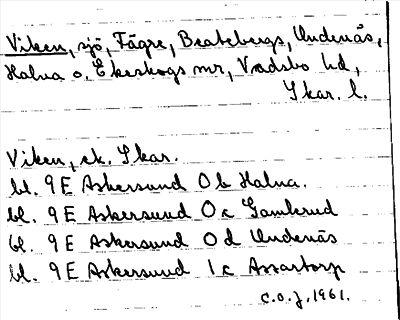 Viken, sjö, Fägre, Beatebergs, Undenäs,
Halna o. Ekeskogs snr, Vadsbo hd,
Skar. l.
Viken, ek. Skar.
bl. 9 E Askersund 0 b Halna.
bl. 9 E Askersund 0 c Gamlerud
bl. 9 E Askersund 0 d Undenäs
bl. 9 E Askersund 1 c Assartorp
C.O.J. 1961.